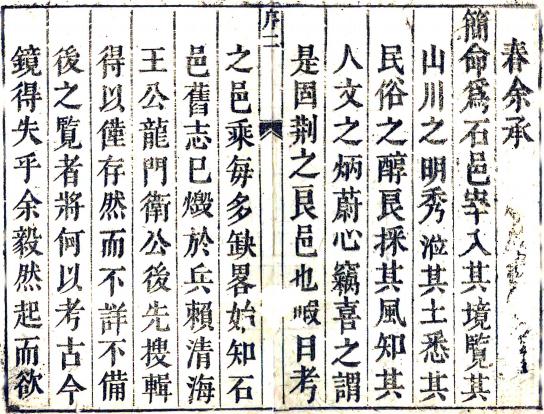 春余承
簡命爲石邑宰入其境覽其
山川之明秀涖其土悉其
民俗之醇艮採其風知其
人文之炳蔚心竊喜之謂
是固荆之艮邑也暇日考
序二
之邑乘每多缺畧始知石
邑舊志已燬於兵賴清海
王公龍門衛公後先搜輯
得以僅存然而不詳不備
後之覽者將何以考古今
鏡得失乎余毅然起而欲